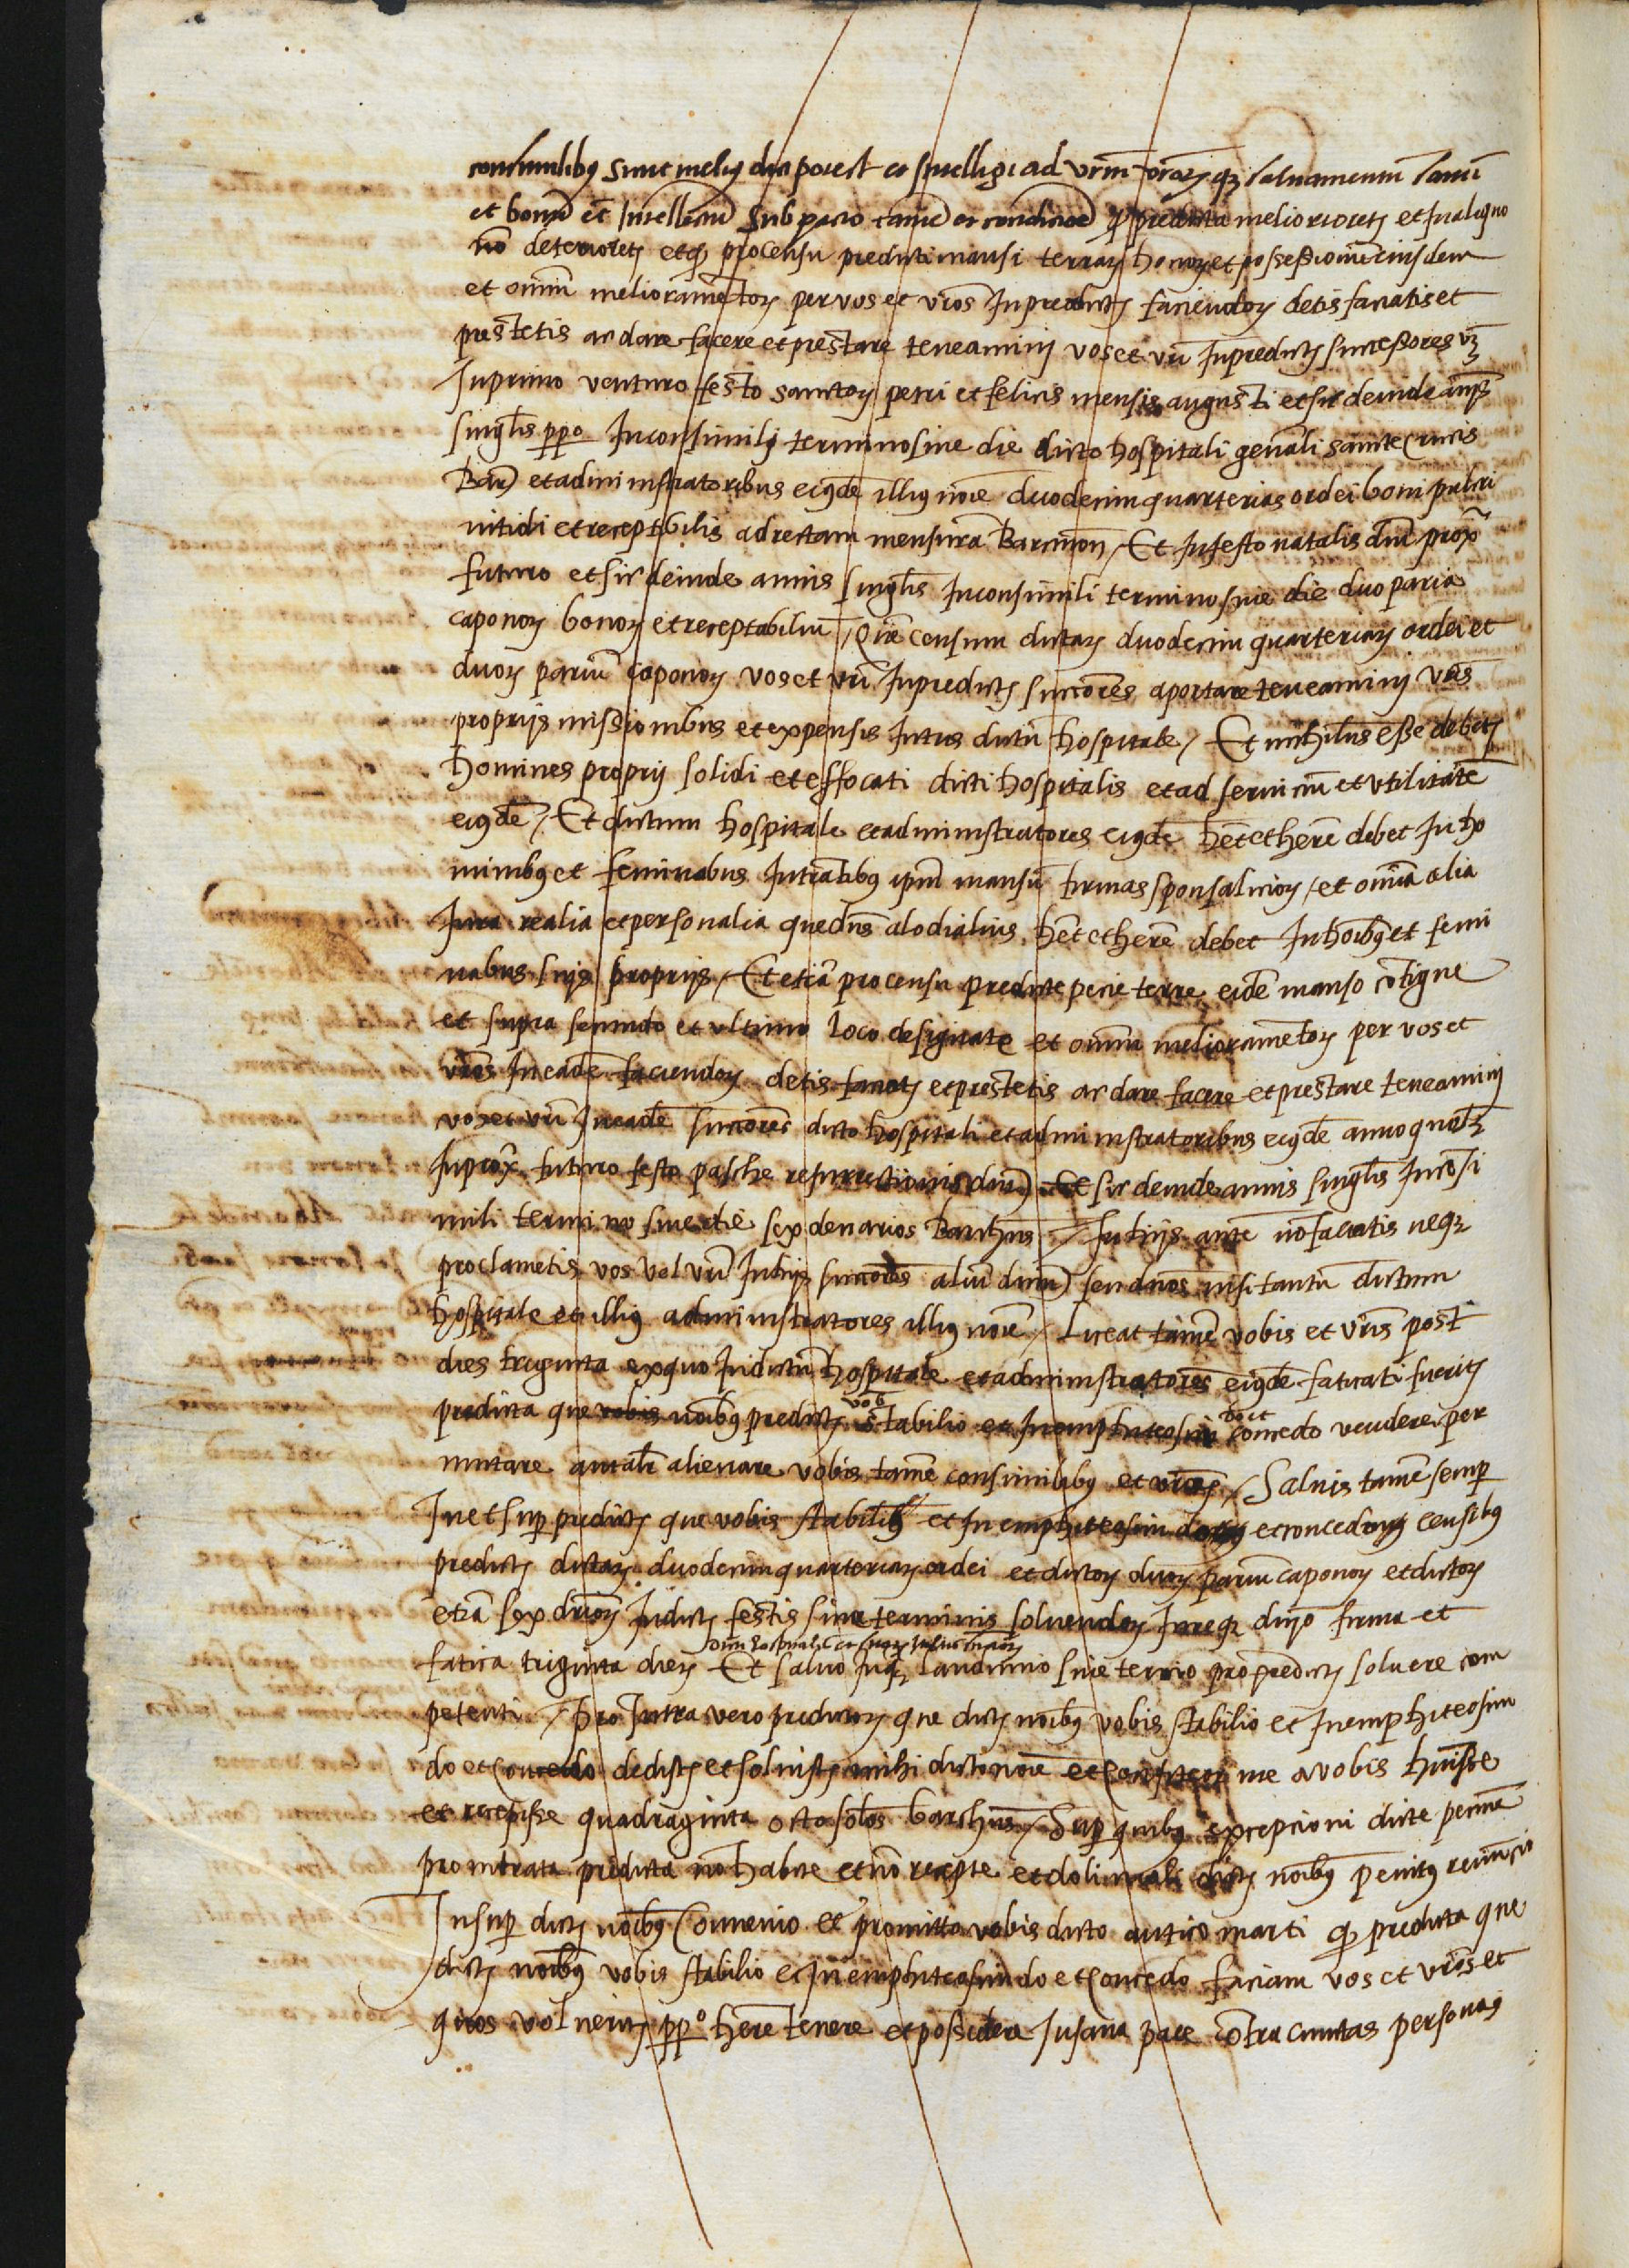 consimilibus sicut melius dici potest et intelligi ad vrm vrorumqz salvamentum sanum
et bonum ec intellectum Sub pacto tamen et condicione qd predicta melioretis et in aliquo
no deterioretis et qd pro censu predicti mansi terrarum honorum et possessionum eiusdem
et omnium melioramentorum per vos et vros In predictis faciendorum detis faciatis et
prestetis ac dare facere et prestare teneamini vos et vri In predictis successores vz
In primo venturo festo sanctorum petri et felicis mensis augusti et sic deinde annis
singlis ppo In consimili termino sive die dicto hospitali generali sancte Crucis
Barn et administratoribus eiusde illius noie duodecim quarterias ordei boni pulcri
nitidi et receptibilis ad rectam mensuram Barcinon / Et In festo natalis dni prox
futuro et sic deinde annis singlis In consimili termino sive die duo paria
caponorum bonorum et receptabilium / Que censum dictarum duodecim quarteriarum ordei et
duorum parium caponorum vos et vri In predictis succores aportare teneamini vris
proprijs missionibus et expensis Intus dictum hospitale / Et nichilus esse debetis
homines proprij solidi et effocati dicti hospitalis et ad servicium et utilitatem
eiusde / Et dictum hospitale et administratores eiusde het et here debet In ho
minibus et feminabus Intrantibus ipm mansum firmas sponsaliciorum / et omia alia
Jura realia et personalia que dns alodialius het et here debet In hoibus et femi
nabus suis proprijs / Et etia pro censu predicte pecie terre eide manso contigue
et supra secundo et ultimo loco designate et omnium melioramentorum per vos et
vros In eade faciendorum detis faciatis et prestetis ac dare facere et prestare teneamini
vos et vri In eade succores dicto hospitali et administratoribus eiusde anno quolz
In prox futuro festo pasche resurrectionis dni Et sic deinde annis singlis In consi
mili termino sive die sex denarios Barchns / In hijs aute no faciatis neqz
proclametis vos vel vri In hijs succores alium dnum seu dnos nisi tantum dictum
hospitale et illius administratores illius noie / Liceat tame vobis et vris post
dies triginta ex quo In dictum hospitale et administratores eiusde faticati fueritis
predicta que vobis noibus predictis vob stabilio et In emphiteosim do et concedo vendere per
mutare aut als alienare vobis tame consimilibus et vris / Salvis tame semp
In et sup predictis que vobis stabilio et In emphiteosim do et concedo censibus
predictis dictarum duodecim quarteriarum ordei et dictorum duorum parium caponorum et dictorum
etia sex driorum In dictis festis sive terminis solvendorum Jureqz dnyo firma et
fatica triginta dierum Et salvo Inqz laudimio sive tercio pro predictis solvere com
petenti / Pro Intrata vero predictorum que dictis noibus vobis stabilio et In emphiteosim
do et Concedo dedistis et solvistis mihi dicto noie et Confiteor me a vobis huisse
et recepisse quadraginta octo solos barchns / Sup quibus excepcioni dicte peccunie
pro intrata predicta no habite et no recepte et doli mali dictis noibus penitus renuncio
Insup dictis noibus Convenio et promitto vobis dicto antico marti qd predicta que
dictis noibus vobis stabilio et In emphiteosim do et Concedo faciam vos et vros et
quos volueritis ppo here tenere et possidere In sana pace contra cunctas personas